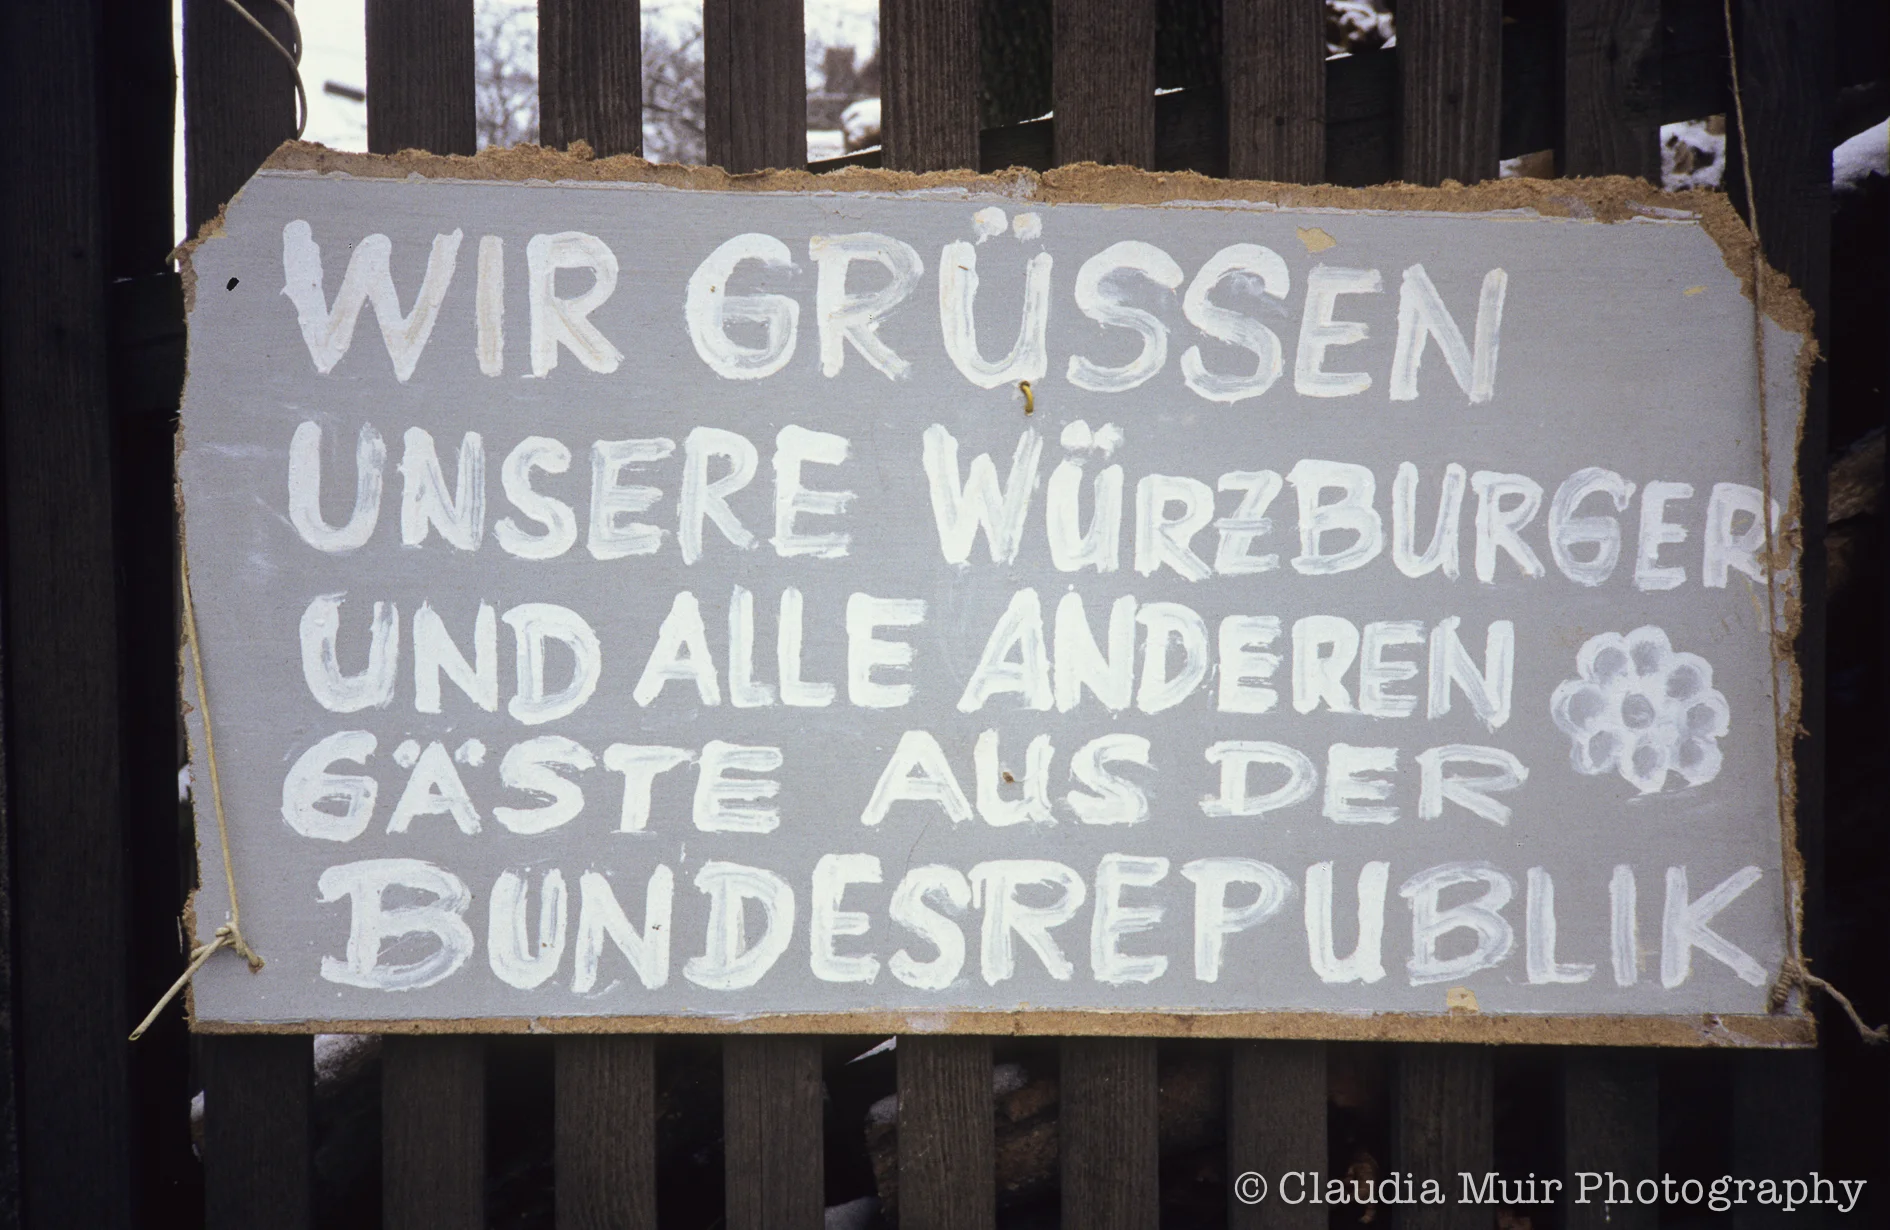 WIR GRÜSSEN
UNSERE WÜRZBURGER
UND ALLE ANDEREN
GÄSTE AUS DER
BUNDESREPUBLIK
© Claudia Muir Photography